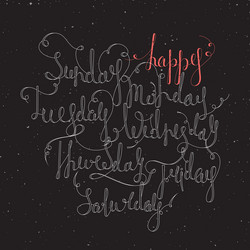 happy
Sunday
Monday
Tuesday
Wednesday
Thursday
Friday
Saturday